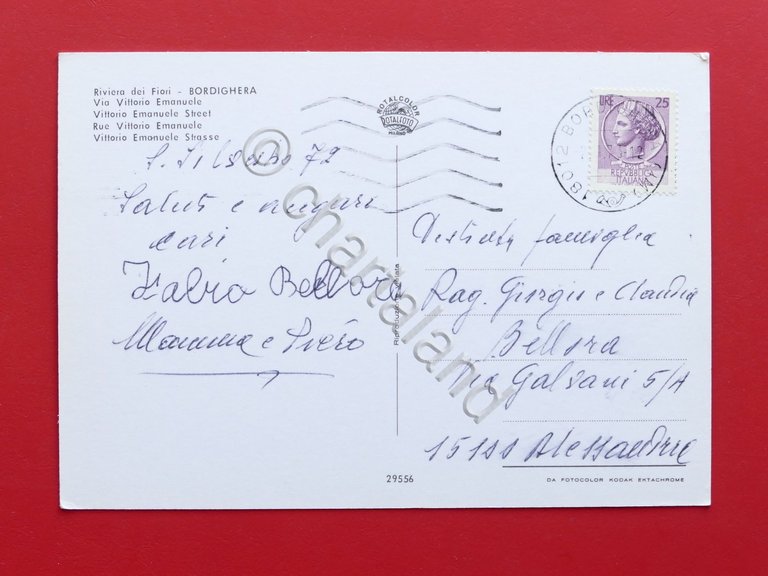 Riviera dei Fiori - BORDIGHERA
Via Vittorio Emanuele
Vittorio Emanuele Street
Rue Vittorio Emanuele
Vittorio Emanuele Strasse
S. Silvestro 72
Saluti e auguri
cari
Fabio Bellora
Mamma e Piero
ROTALCOLOR
ROTALFOTO
MILANO
LIRE 25
REPVBBLICA
ITALIANA
18012 BOR
Distinta famiglia
Rag. Giorgio e Claudia
Bellora
Via Galvani 5/A
15100 Alessandria
Riproduzione vietata
29556
DA FOTOCOLOR KODAK EKTACHROME
© chartaland